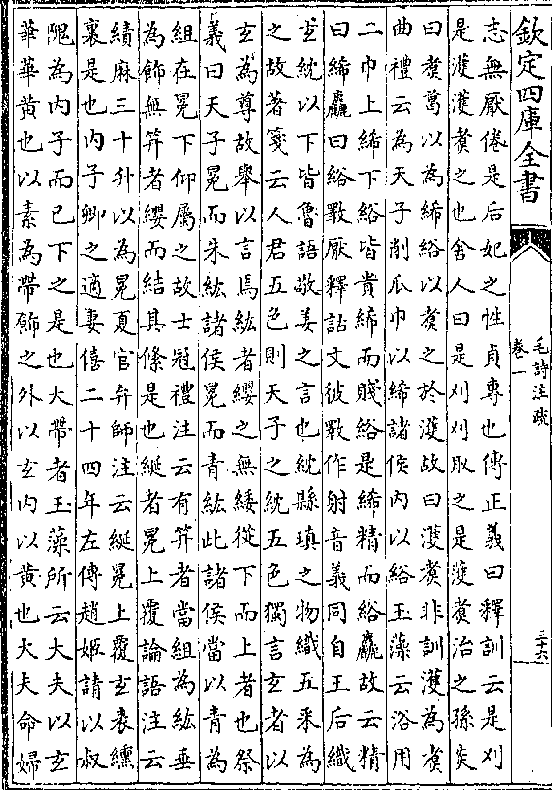 欽定四庫全書
毛詩注疏
卷一
三十六
志無厭倦是后妃之性貞專也傳正義曰釋訓云是刈
是濩濩煑之也舍人曰是刈刈取之是濩煑治之孫炎
曰煑葛以為絺綌以煑之於濩故曰濩煑非訓濩為煑
曲禮云為天子削瓜巾以絺諸侯内以綌玉藻云浴用
二巾上絺下綌皆貴絺而賤綌是絺精而綌麤故云精
曰絺麤曰綌斁厭釋詁文彼斁作射音義同自王后織
𤣥紞以下皆魯語敬姜之言也紞縣瑱之物織五采為
之故著箋云人君五色則天子之紞五色獨言𤣥者以
𤣥為尊故舉以言焉紘者纓之無緌從下而上者也祭
義曰天子冕而朱紘諸侯冕而青紘此諸侯當以青為
組在冕下仰屬之故士冠禮注云有筓者當組為紘垂
為飾無筓者纓而結其絛是也綖者冕上覆論語注云
績麻三十升以為冕夏官弁師注云綖冕上覆𤣥表纁
裏是也内子卿之適妻僖二十四年左傳趙姬請以叔
隗為内子而已下之是也大帶者玉藻所云大夫以𤣥
華華黄也以素為帶飾之外以𤣥内以黄也大夫命婦